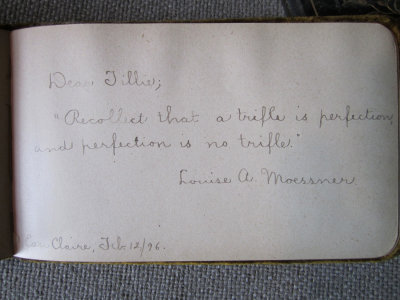 Dear Tillie;
"Recollect that a trifle is perfection,
and perfection is no trifle."
Louise A. Moessner.
Eau Claire, Feb. 12/96.